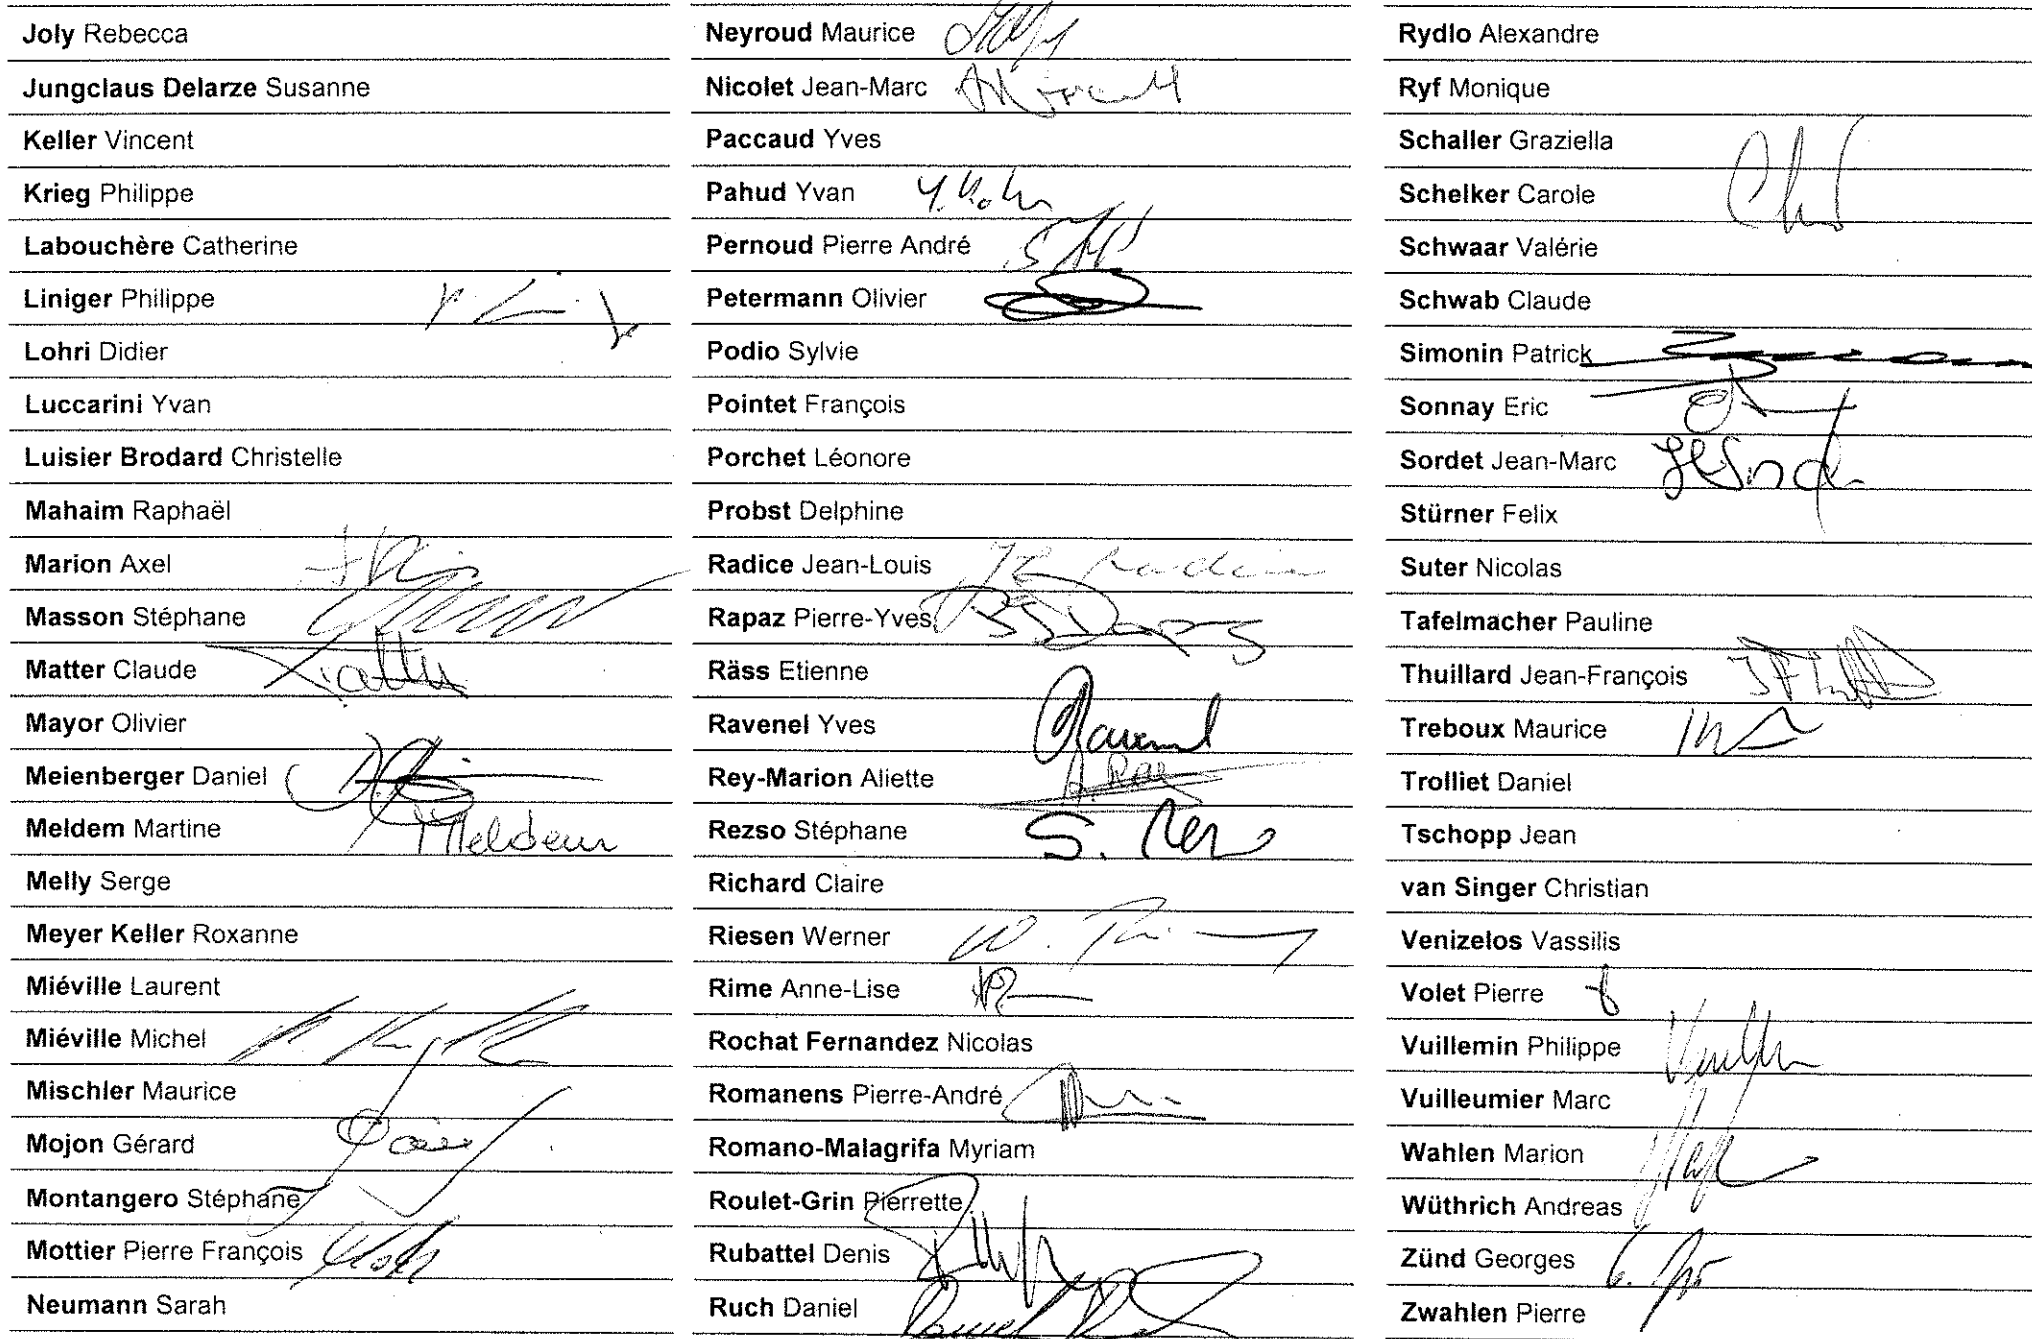 Joly Rebecca
Jungclaus Delarze Susanne
Keller Vincent
Krieg Philippe
Labouchère Catherine
Liniger Philippe
Lohri Didier
Luccarini Yvan
Luisier Brodard Christelle
Mahaim Raphaël
Marion Axel
Masson Stéphane
Matter Claude
Mayor Olivier
Meienberger Daniel
Meldem Martine Meldem
Melly Serge
Meyer Keller Roxanne
Miéville Laurent
Miéville Michel
Mischler Maurice
Mojon Gérard
Montangero Stéphane
Mottier Pierre François
Neumann Sarah
Neyroud Maurice
Nicolet Jean-Marc
Paccaud Yves
Pahud Yvan
Pernoud Pierre André
Petermann Olivier
Podio Sylvie
Pointet François
Porchet Léonore
Probst Delphine
Radice Jean-Louis
Rapaz Pierre-Yves
Räss Etienne
Ravenel Yves
Rey-Marion Aliette
Rezso Stéphane
Richard Claire
Riesen Werner
Rime Anne-Lise
Rochat Fernandez Nicolas
Romanens Pierre-André
Romano-Malagrifa Myriam
Roulet-Grin Pierrette
Rubattel Denis
Ruch Daniel
Rydlo Alexandre
Ryf Monique
Schaller Graziella
Schelker Carole
Schwaar Valérie
Schwab Claude
Simonin Patrick
Sonnay Eric
Sordet Jean-Marc
Stürner Felix
Suter Nicolas
Tafelmacher Pauline
Thuillard Jean-François
Treboux Maurice
Trolliet Daniel
Tschopp Jean
van Singer Christian
Venizelos Vassilis
Volet Pierre
Vuillemin Philippe
Vuilleumier Marc
Wahlen Marion
Wüthrich Andreas
Zünd Georges
Zwahlen Pierre